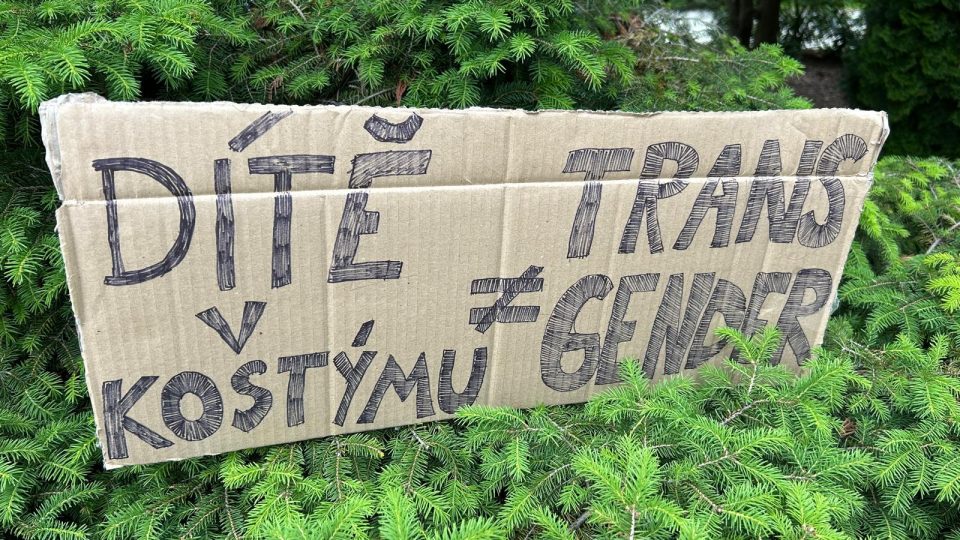 DÍTĚ
V
KOSTÝMU
≠
TRANS
GENDER